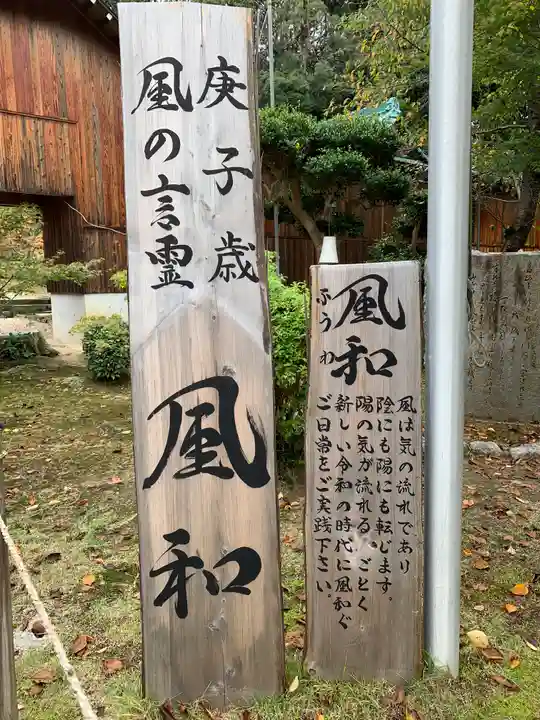 庚子歳
風の言霊
風和
風和
ふうわ
風は気の流れであり
陰にも陽にも転じます。
陽の気が流れるごとく
新しい令和の時代に風和ぐ
ご日常をご実践下さい。